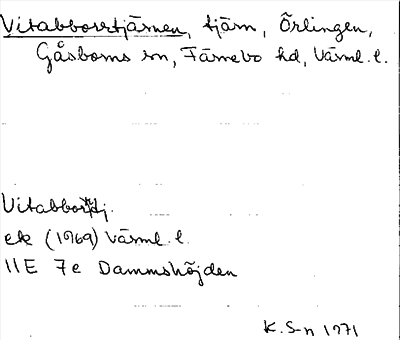 Vitabborrtjärnen, tjärn, Örlingen,
Gåsborns sn, Färnebo hd, Värml. l.
Vitabborrtj.
ek (1969) Värml. l.
11E 7e Dammshöjden
K. S-n 1971